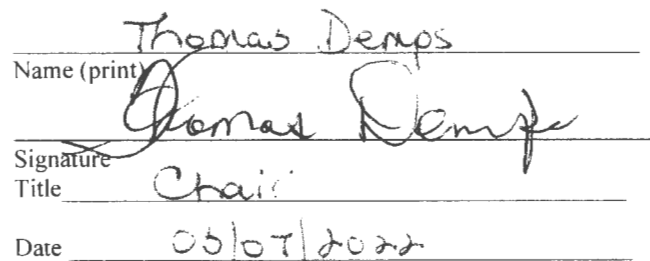 Thomas Demps
Name (print)
Thomas Demps
Signature
Title Chair
Date 05/07/2022